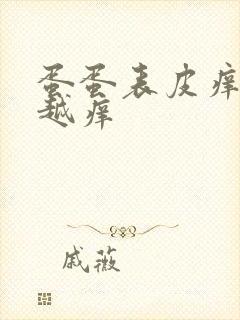 蛋蛋表皮痒
越痒
戚薇